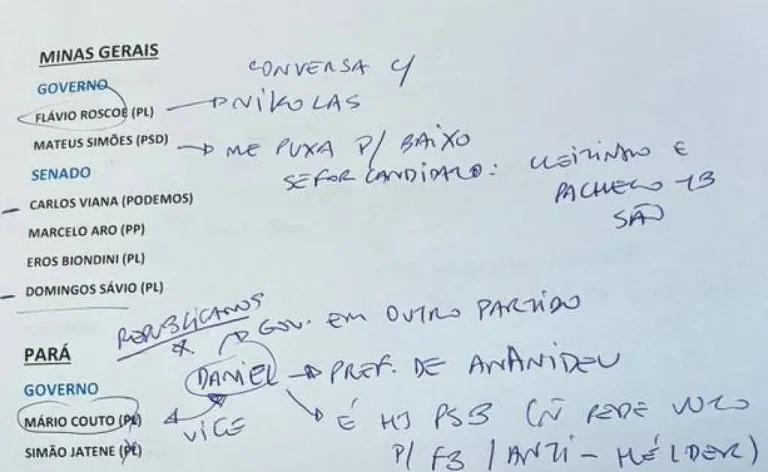 MINAS GERAIS
CONVERSA C/
GOVERNO
FLÁVIO ROSCOE (PL) → NIKOLAS
MATEUS SIMÕES (PSD) → ME PUXA P/ BAIXO
SE FOR CANDIDATO: CLEITINHO E
PACHECO
SENADO
CARLOS VIANA (PODEMOS)
MARCELO ARO (PP)
EROS BIONDINI (PL)
DOMINGOS SÁVIO (PL)
REPUBLICANOS
GOV. EM OUTRO PARTIDO
PARÁ
DANIEL → PREF. DE ANANIDEU
GOVERNO
MÁRIO COUTO (PL)
VICE
É HJ PSB (Ñ PEDE VOTO
SIMÃO JATENE (PL)
P/ FB / ANTI-HÉLDER)